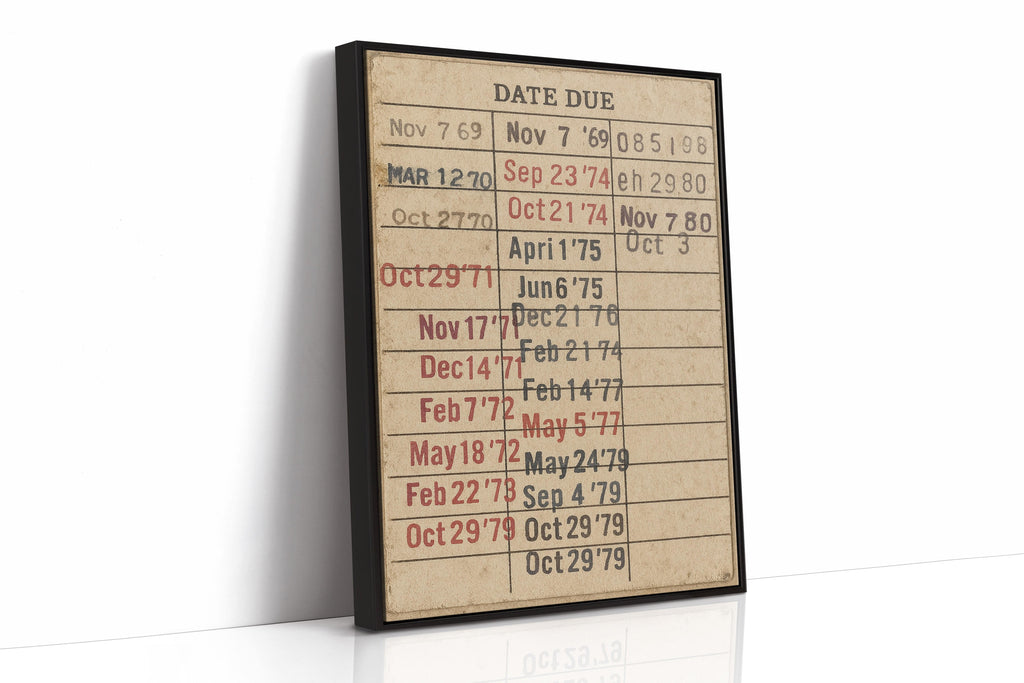 DATE DUE
Nov 7 69 Nov 7 '69 085198
MAR 12 70 Sep 23 '74 eh 29 80
Oct 27 70 Oct 21 '74 Nov 7 80
Apri 1 '75 Oct 3
Oct 29 '71 Jun 6 '75
Nov 17 '71 Dec 21 76
Dec 14 '71 Feb 21 74
Feb 7 '72 Feb 14 '77
May 18 '72 May 5 '77
Feb 22 '73 May 24 '79
Oct 29 '79 Sep 4 '79
Oct 29 '79
Oct 29 '79